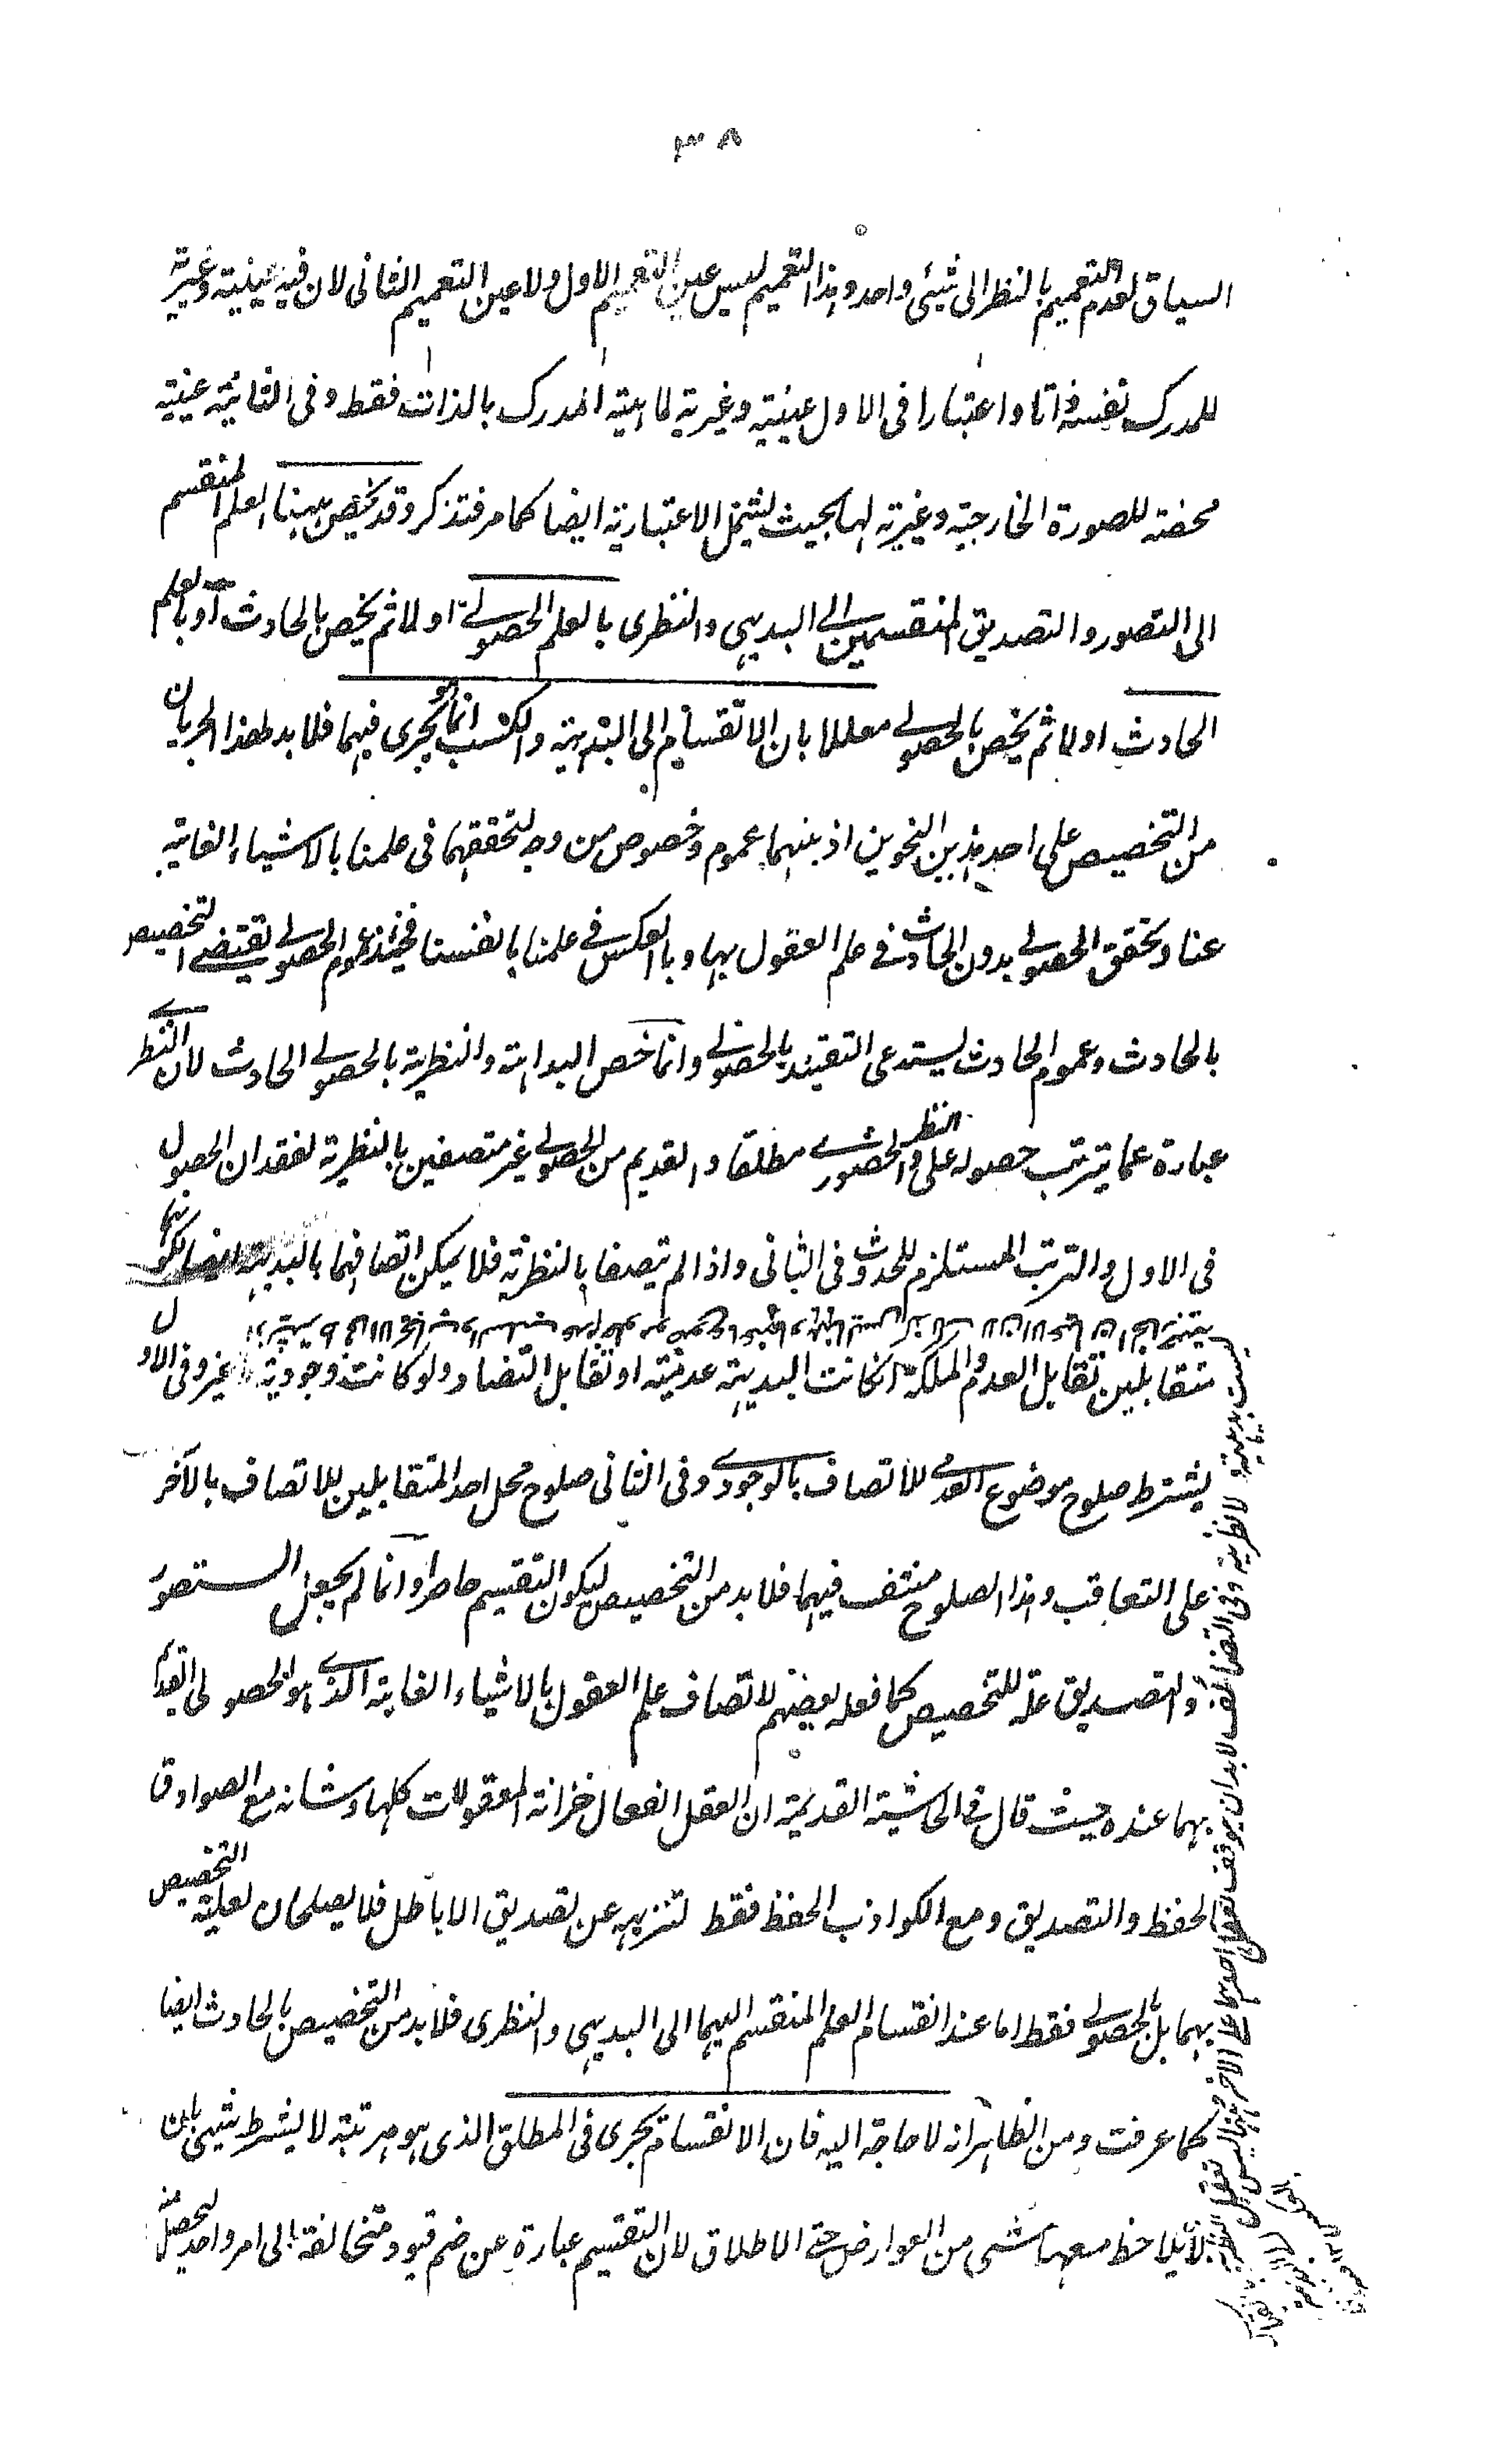 ٣٨
السياق لعدم التعميم بالنظر الى شيئ واحد وهذا التعميم ليس عين التعميم الاول ولا عين التعميم الثانى لان فيه عينية وغيرية
للمدرك نفسه ذاتا واعتبارا فى الاول عينية وغيرية لماهية المدرك بالذات فقط وفى الثانية عينية
محضة للصورة الخارجية وغيرية لها بحيث يشتمل الاعتبارية ايضا كما مر فتذكر وقد يخص ههنا العلم المنقسم
الى التصور والتصديق المنقسمين الى البديهى والنظرى بالعلم الحصولى اولا ثم يخص بالحادث او بالعلم
الحادث اولا ثم يخص بالحصولى معللا بان الانقسام الى البديهية والكسب انما هو يجرى فيهما فلا بد لهذا الجريان
من التخصيص على احد هذين النحوين اذ بينهما عموم وخصوص من وجه لتحققهما فى علمنا بالاشياء الغائبة
عنا وتحقق الحصولى بدون الحادث فى علم العقول بها وبالعكس فى علمنا بانفسنا فحينئذ عموم الحصولى يقتضى التخصيص
بالحادث وعموم الحادث يستدعى التقييد بالحصولى وانما خص البداهة والنظرية بالحصولى الحادث لان النظر
عبارة عما يترتب حصوله على النظر والحضورى مطلقا والقديم من الحصولى غير متصفين بالنظرية لفقدان الحصول
فى الاول والترتب المستلزم للحدوث فى الثانى واذا لم يتصفا بالنظرية فلا يمكن اتصافهما بالبديهية ايضا لكونهما
متقابلين تقابل العدم والملكة انكانت البديهية عدمية او تقابل التضاد ولو كانت وجودية وفى الاول
يشترط صلوح موضوع العدمى للاتصاف بالوجودى وفى الثانى صلوح محل احد المتقابلين للاتصاف بالآخر
على التعاقب وهذا الصلوح منتف فيهما فلا بد من التخصيص ليكون التقسيم حاصرا وانما لم يجعل التصور
والتصديق علة للتخصيص كما فعله بعضهم لاتصاف علم العقول بالاشياء الغائبة الذى هو الحصولى القديم
بهما عنده حيث قال فى الحاشية القديمة ان العقل الفعال خزانة المعقولات كلها وشانه مع الصوادق
الحفظ والتصديق ومع الكواذب الحفظ فقط لتنزيهه عن تصديق الاباطل فلا يصلحان لعلية التخصيص
بهما بل بالحصولى فقط اما عند انقسام العلم المنقسم اليهما الى البديهى والنظرى فلا بد من التخصيص بالحادث ايضا
كما عرفت ومن الظاهر انه لا حاجة اليه فان الانقسام يجرى فى المطلق الذى هو مرتبة لا بشرط شيئ بان
لا يلاحظ معها شى من العوارض حتى الاطلاق لان التقسيم عبارة عن ضم قيود متخالفة الى امر واحد ليحصل منه
ليست بديهية لا نظرية وفى التضايف لا بد ان يتوقف تعقل احدهما على الآخر